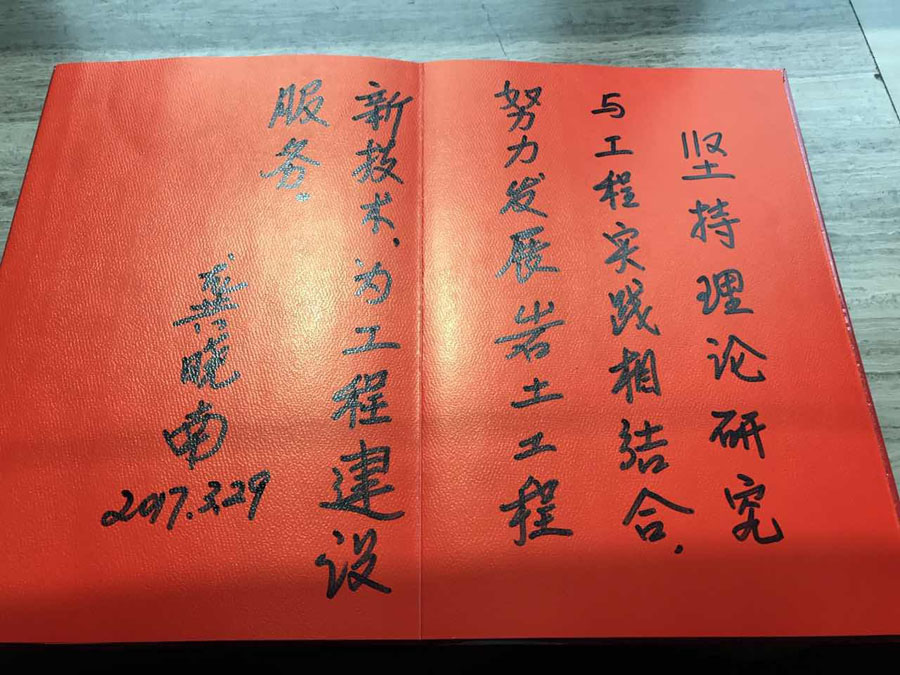 坚持理论研究
与工程实践相结合，
努力发展岩土工程
新技术、为工程建设
服务。
龚晓南
2017.3.29